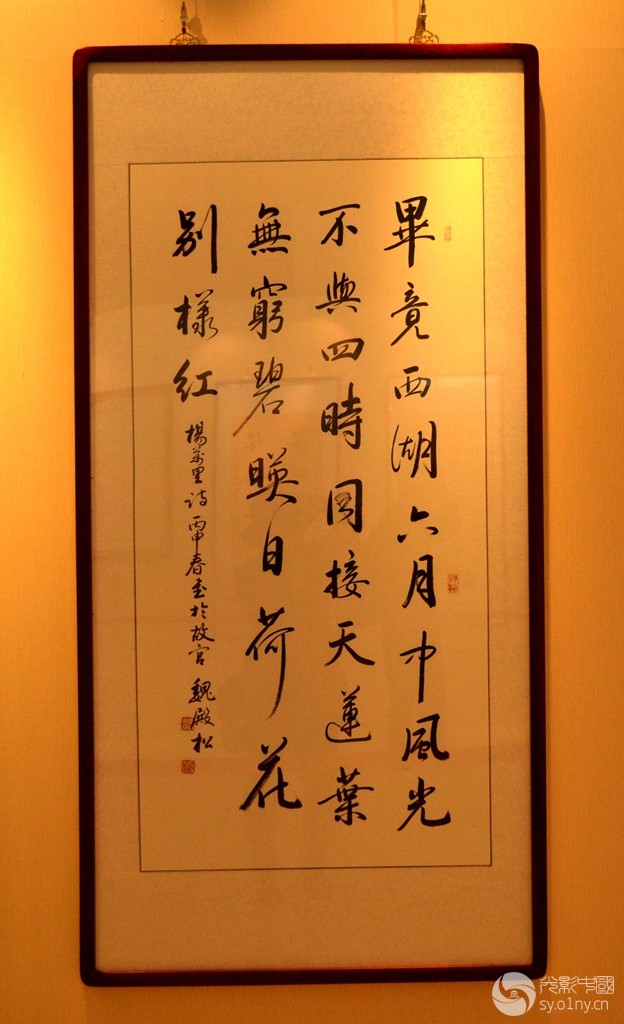 畢竟西湖六月中風光
不與四時同接天蓮葉
無窮碧暎日荷花
别樣紅
楊萬里詩丙申春書於故宮 魏殿松
光影中國
sy.o1ny.cn